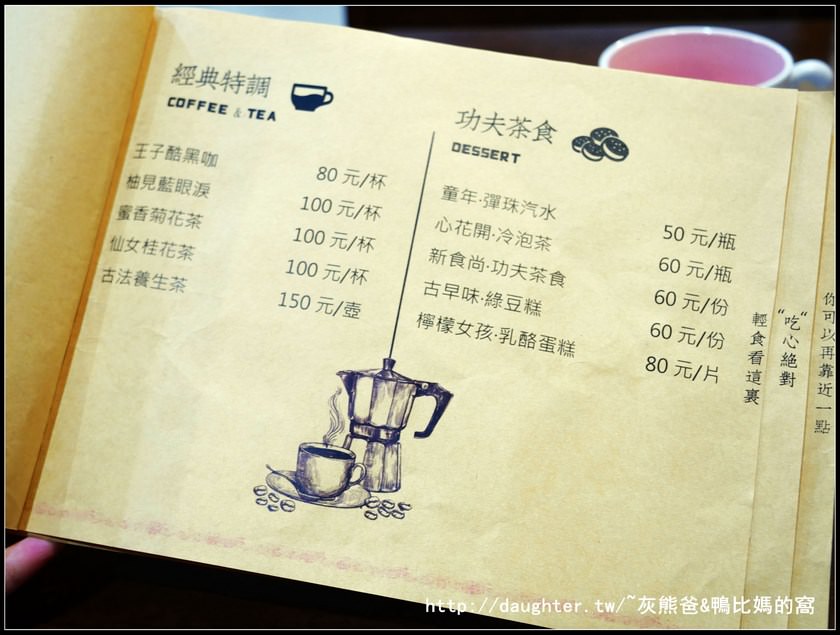 經典特調
COFFEE & TEA
王子酷黑咖 80 元/杯
柚見藍眼淚 100 元/杯
蜜香菊花茶 100 元/杯
仙女桂花茶 100 元/杯
古法養生茶 150 元/壺
功夫茶食
DESSERT
童年·彈珠汽水 50 元/瓶
心花開·冷泡茶 60 元/瓶
新食尚·功夫茶食 60 元/份
古早味·綠豆糕 60 元/份
檸檬女孩·乳酪蛋糕 80 元/片
輕食看這裏
“吃心絕對
你可以再靠近一點
http://daughter.tw/~灰熊爸&鴨比媽的窩